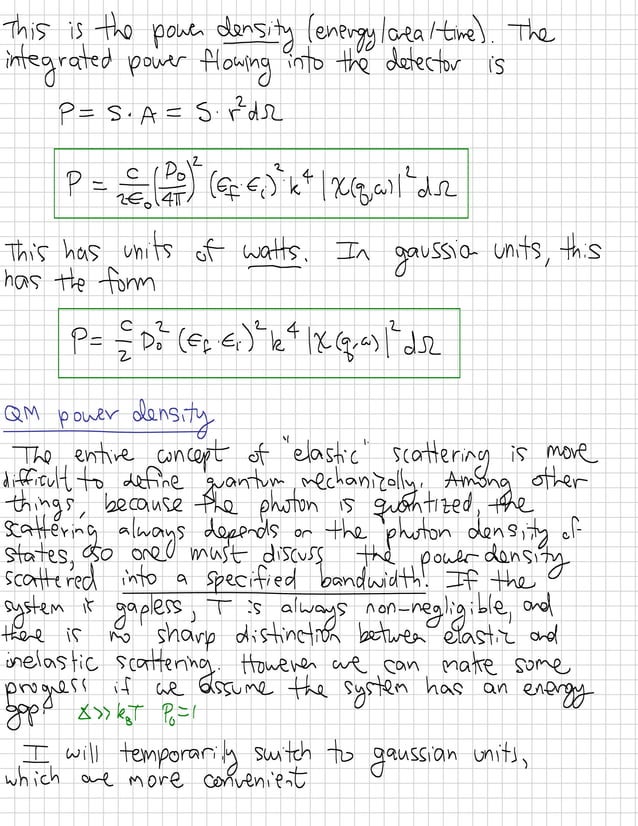 This is the power density (energy/area/time). The
integrated power flowing into the detector is
P = S · A = S · r²dΩ
P = c/2ϵ₀ (D₀/4π)² (ϵ_f · ϵ_i)² k⁴ |χ(q,ω)|² dΩ
This has units of watts. In gaussian units, this
has the form
P = c/2 D₀² (ϵ_f · ϵ_i)² k⁴ |χ(q,ω)|² dΩ
QM power density
The entire concept of "elastic" scattering is more
difficult to define quantum mechanically. Among other
things, because the photon is quantized, the
scattering always depends on the photon density of
states, so one must discuss the power density
scattered into a specified bandwidth. If the
system is gapless, T is always non-negligible, and
there is no sharp distinction between elastic and
inelastic scattering. However we can make some
progress if we assume the system has an energy
gap. Δ >> k_BT P₀ = 1
I will temporarily switch to gaussian units,
which are more convenient